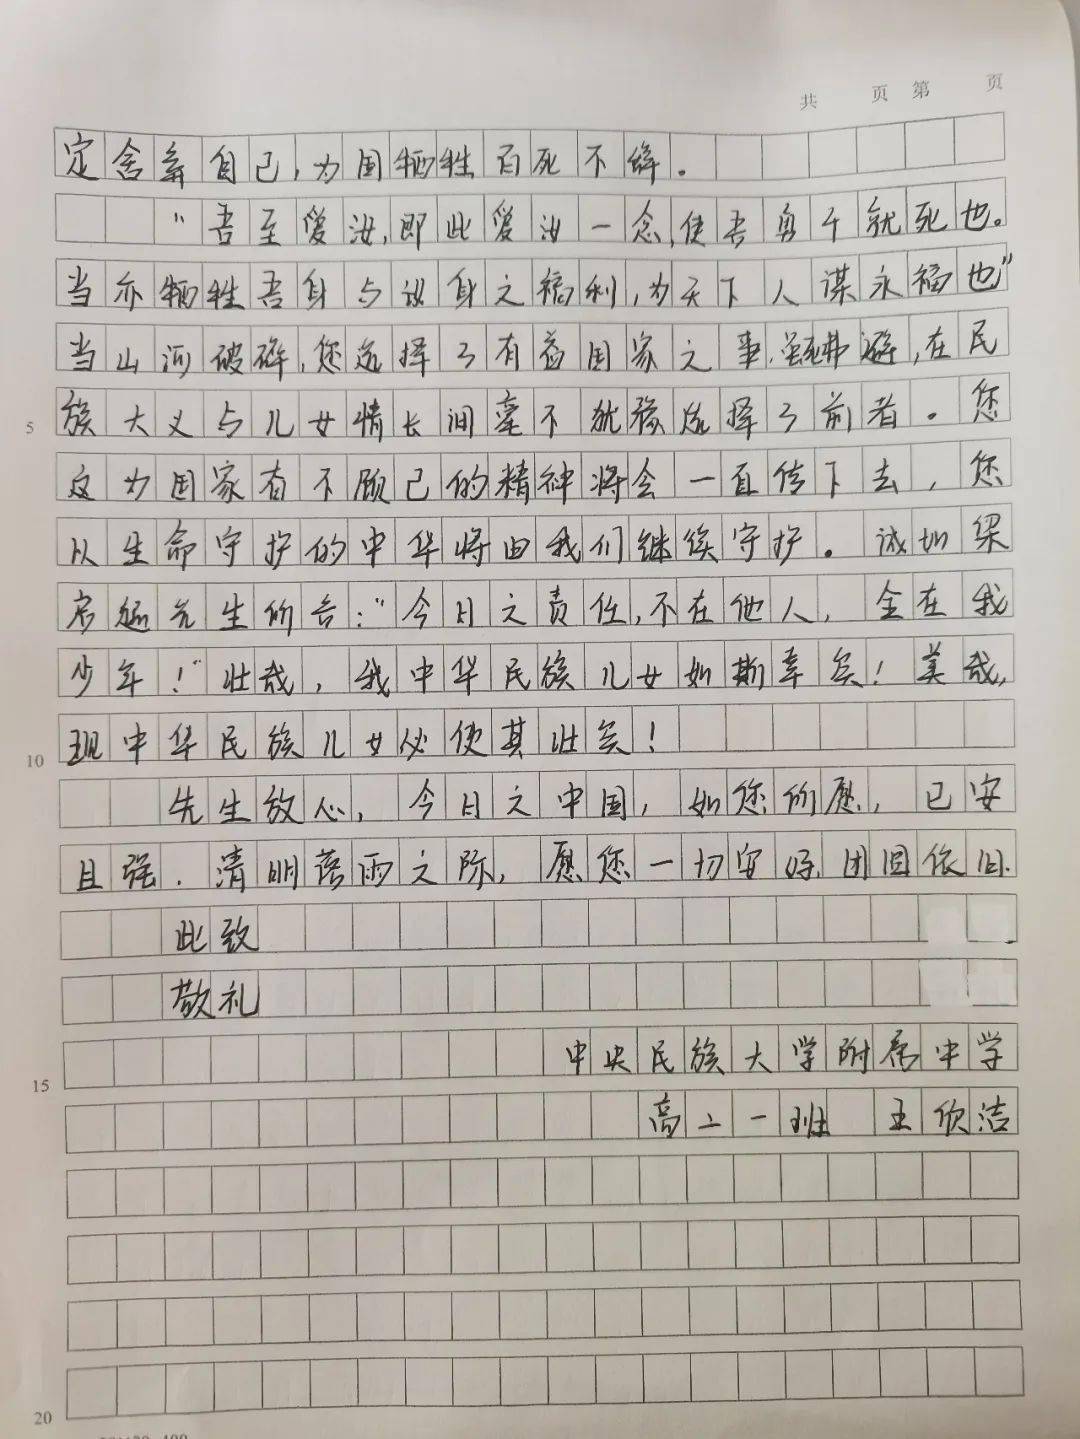 共 页 第 页
定舍弃自己，为国牺牲百死不辞。
“吾至爱汝，即此爱汝一念，使吾勇于就死也。
当亦牺牲吾身与汝身之福利，为天下人谋永福也”
当山河破碎，您选择了有益国家之事，虽死弗避，在民
5 族大义与儿女情长间毫不犹豫选择了前者。您
这为国家有不顾己的精神将会一直传下去，您
以生命守护的中华将由我们继续守护。诚如梁
启超先生所言：“今日之责任，不在他人，全在我
少年！”壮哉，我中华民族儿女如斯幸矣！美哉，
10 现中华民族儿女必使其壮矣！
先生放心，今日之中国，如您所愿，已安
且强．清明落雨之际，愿您一切安好，团圆依旧．
此致
敬礼
15 中央民族大学附属中学
高二一班 王欣洁
20